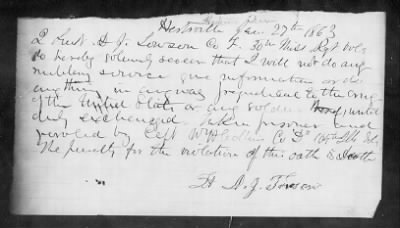 Hestville Jan 27th 1863
I Lieut A. J. Lawson Co F. 30th Miss Rgt vols
do hereby solemly swear that I will not do any
military service give information or do
anything in any way prejudicial to the cause
of the United States or any soldier until
duly exchanged taken prisoner and
paroled by Capt Co
The penalty for the violation of this oath is death
Lt A. J. Lawson